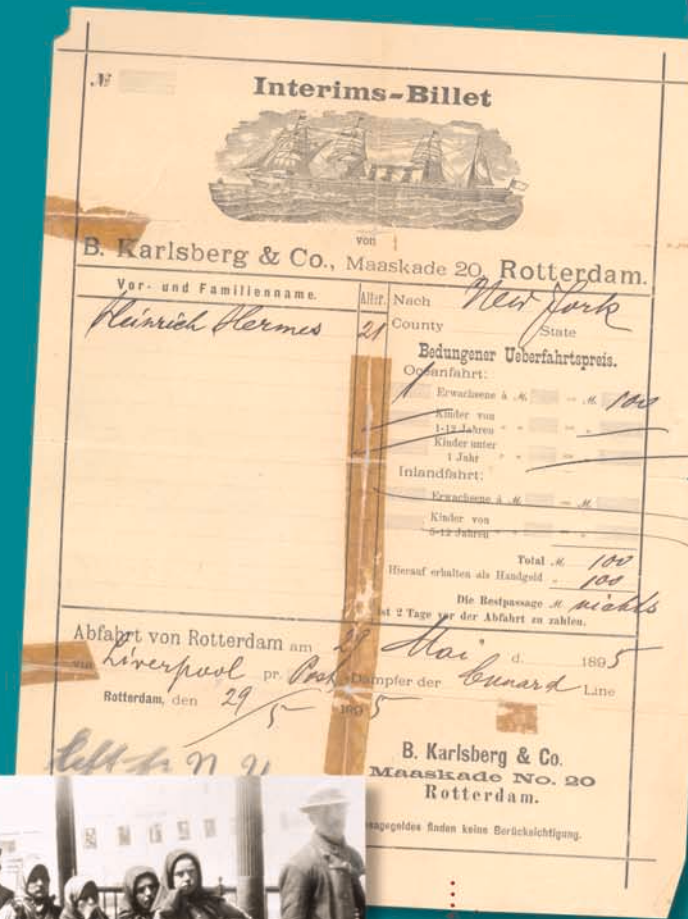 №
Interims-Billet
von
B. Karlsberg & Co., Maaskade 20, Rotterdam.
Vor- und Familienname.
Alter.
Heinrich Hermes
21
Nach New York
County State
Bedungener Ueberfahrtspreis.
Oceanfahrt:
1 Erwachsene à M. = M. 100
Kinder von
1-12 Jahren " " = "
Kinder unter
1 Jahr " " = "
Inlandfahrt:
Erwachsene à M. = M.
Kinder von
5-12 Jahren " " = "
Total M. 100
Hierauf erhalten als Handgeld " 100
Die Restpassage M. nichts
ist 2 Tage vor der Abfahrt zu zahlen.
Abfahrt von Rotterdam am 29 Mai d. 1895
via Liverpool pr. Post-Dampfer der Cunard Line
Rotterdam, den 29/5 1895
N. Y.
B. Karlsberg & Co.
Maaskade No. 20
Rotterdam.
finden keine Berücksichtigung.